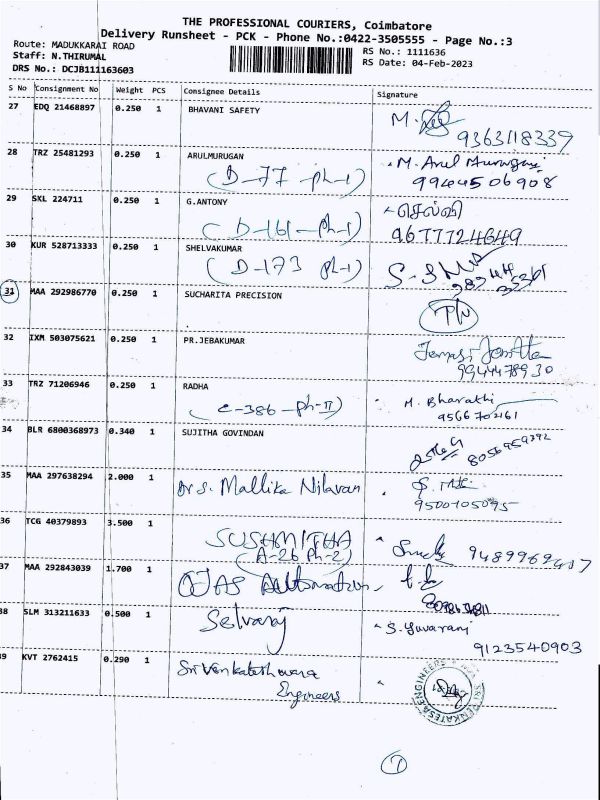 THE PROFESSIONAL COURIERS, Coimbatore
Delivery Runsheet - PCK - Phone No.:0422-3505555 - Page No.:3
Route: MADUKKARAI ROAD
Staff: N.THIRUMAL
DRS No.: DCJB111163603
RS No.: 1111636
RS Date: 04-Feb-2023
S No Consignment No Weight PCS Consignee Details Signature
27 EDQ 21468897 0.250 1 BHAVANI SAFETY M.
9363118339
28 TRZ 25481293 0.250 1 ARULMURUGAN M. Arul Murugan
(D-77-Ph-1) 9944506908
29 SKL 224711 0.250 1 G.ANTONY செல்வி
(D-161-Ph-1) 9677724649
30 KUR 528713333 0.250 1 SHELVAKUMAR
(D-173 Ph-1)
31 MAA 292986770 0.250 1 SUCHARITA PRECISION
P/N
32 IXM 503075621 0.250 1 PR.JEBAKUMAR
9944478930
33 TRZ 71206946 0.250 1 RADHA M. Bharathi
(C-386-Ph-II) 9566702161
34 BLR 6800368973 0.340 1 SUJITHA GOVINDAN
8056959392
35 MAA 297638294 2.000 1 Dr S. Mallika Nilavan
9500105095
36 TCG 40379893 3.500 1 SUSHMITHA
(A-26 Ph-2)
37 MAA 292843039 1.700 1 OJAS Automation
38 SLM 313211633 0.500 1 Selvaraj S. Yuvarani
9123540903
39 KVT 2762415 0.290 1 Sri Venkateshwara
Engineers
SRI VENKATESA ENGINEERS